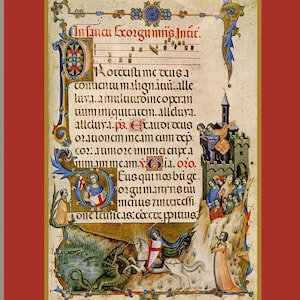 In sancti Georgii mris Intr.
Protexisti me deus a
conuentu malignātiū. alle
luya. a multitudine operan
tium iniquitatem. alleluya.
alleluya. ps. Exaudi deus
orationem meam cum dep
cor: a timore inimici eripe a
nimam meam. Gla. oro.
Deus qui nos bti ge
orgii martiris tui
meritis et intercessi
one letificas: propitius